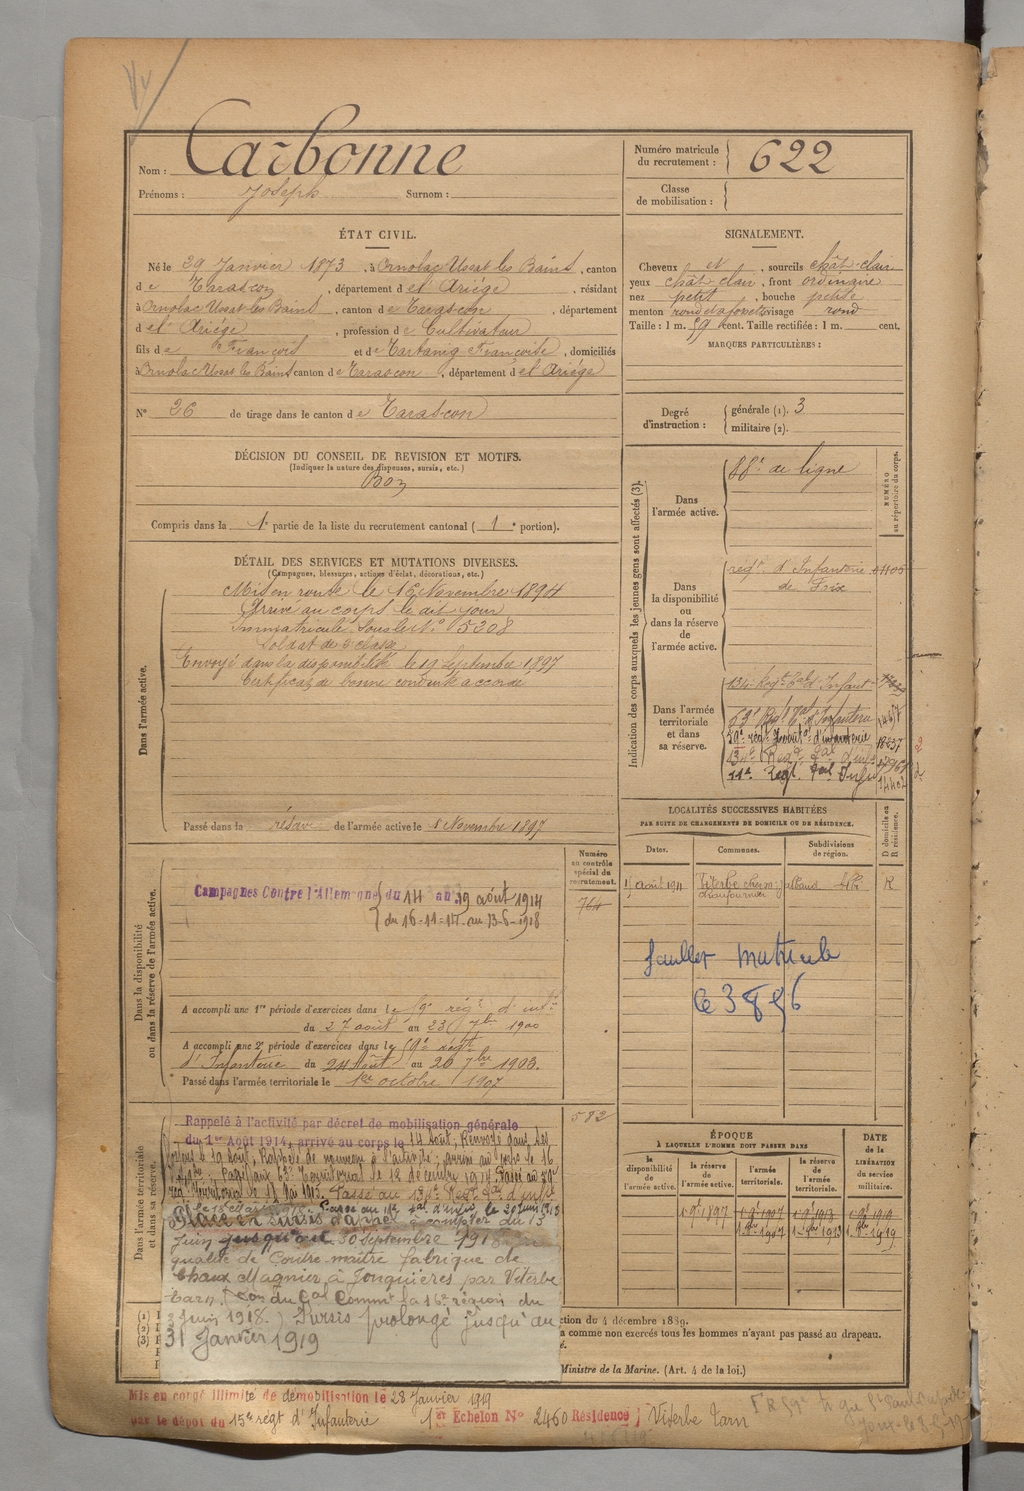 Nom : Carbonne
Prénoms : Joseph Surnom :
Numéro matricule du recrutement : 622
Classe de mobilisation :
ÉTAT CIVIL.
Né le 29 Janvier 1873, à Ornolac Ussat les Bains, canton
de Tarascon, département de l Ariége, résidant
à Ornolac Ussat les Bains, canton de Tarascon, département
de l Ariége, profession de Cultivateur
fils de François et de Françoise, domiciliés
à Ornolac Ussat les Bains canton de Tarascon, département de l Ariége
N° 26 de tirage dans le canton de Tarascon
SIGNALEMENT.
Cheveux et, sourcils chât-clair
yeux chât clair, front ordinaire
nez petit, bouche petite
menton rond et à fossette visage rond
Taille : 1 m. 59 cent. Taille rectifiée : 1 m. cent.
MARQUES PARTICULIÈRES :
Degré d'instruction : générale (1). 3
militaire (2).
DÉCISION DU CONSEIL DE REVISION ET MOTIFS.
(Indiquer la nature des dispenses, sursis, etc.)
Bon
Compris dans la 1e partie de la liste du recrutement cantonal (1e portion).
DÉTAIL DES SERVICES ET MUTATIONS DIVERSES.
(Campagnes, blessures, actions d'éclat, décorations, etc.)
Dans l'armée active.
Mis en route le 16 Novembre 1894
Arrivé au corps le dit jour
Immatriculé sous le N° 5208
Soldat de 2e classe
Envoyé dans la disponibilité le 19 Septembre 1897
Certificat de bonne conduite accordé
Passé dans la réserve de l'armée active le 1 Novembre 1897
Indication des corps auxquels les jeunes gens sont affectés (3).
NUMÉRO au répertoire du corps.
Dans l'armée active.
88e de ligne
Dans la disponibilité ou dans la réserve de l'armée active.
régt d'Infanterie
de Foix
Dans l'armée territoriale et dans sa réserve.
134e Régt tal d'Infant
Régt Tal d'Infanterie 14657
59e régt territal d'infanterie 18837
134e Régt tal d'inf
Regt tal Infie
LOCALITÉS SUCCESSIVES HABITÉES
PAR SUITE DE CHANGEMENTS DE DOMICILE OU DE RÉSIDENCE.
Dates. Communes. Subdivisions de région. D domicile ou R résidence.
août 1911 Viterbe chez chaufournier Albi R
matricule
Dans la disponibilité ou dans la réserve de l'armée active.
Numéro au contrôle spécial du recrutement.
764
Campagnes Contre l'Allemagne du 14 au 19 août 1914
du 16-11-14 au 13-6-1918
A accompli une 1re période d'exercices dans le 59e régt d'infie
du 27 août au 23 7bre 1900
A accompli une 2e période d'exercices dans le 59e régt
d'Infanterie du 24 Août au 20 7bre 1903.
Passé dans l'armée territoriale le 1er octobre 1907
582
Dans l'armée territoriale et dans sa réserve.
Rappelé à l'activité par décret de mobilisation générale
du 1er Août 1914, arrivé au corps le 14 Août, Renvoyé dans ses
foyers le 19 Août, Rappelé de nouveau à l'activité; arrivé au corps le 16
Territorial le 12 décembre 1914. Passé au 59e
rég Territorial le Mai 1915. Passé au 134e Régt tal d'infie
Placé en sursis d'appel à compter du 13
juin jusqu'au 30 Septembre 1918 en
qualité de Contre-maître fabrique de
Chaux Magnier à Jonquières par Viterbe
Tarn. Don du Gal Commt la 16e région du
Juin 1918.) Sursis prolongé jusqu'au
31 Janvier 1919
ÉPOQUE
À LAQUELLE L'HOMME DOIT PASSER DANS
la disponibilité de l'armée active. la réserve de l'armée active. l'armée territoriale. la réserve de l'armée territoriale.
DATE de la LIBÉRATION du service militaire.
1 9bre 1897 1 9bre 1907 1 9bre 1913 1 9bre 1919
1 8bre 1907 1 8bre 1913 1 8bre 1919
(1)
(2)
(3)
ction du 4 décembre 1889.
a comme non exercés tous les hommes n'ayant pas passé au drapeau.
Ministre de la Marine. (Art. 4 de la loi.)
Mis en congé illimité de démobilisation le 28 Janvier 1919
par le dépôt du 15e régt d'Infanterie 1er Echelon N° 2460 Résidence Viterbe Tarn